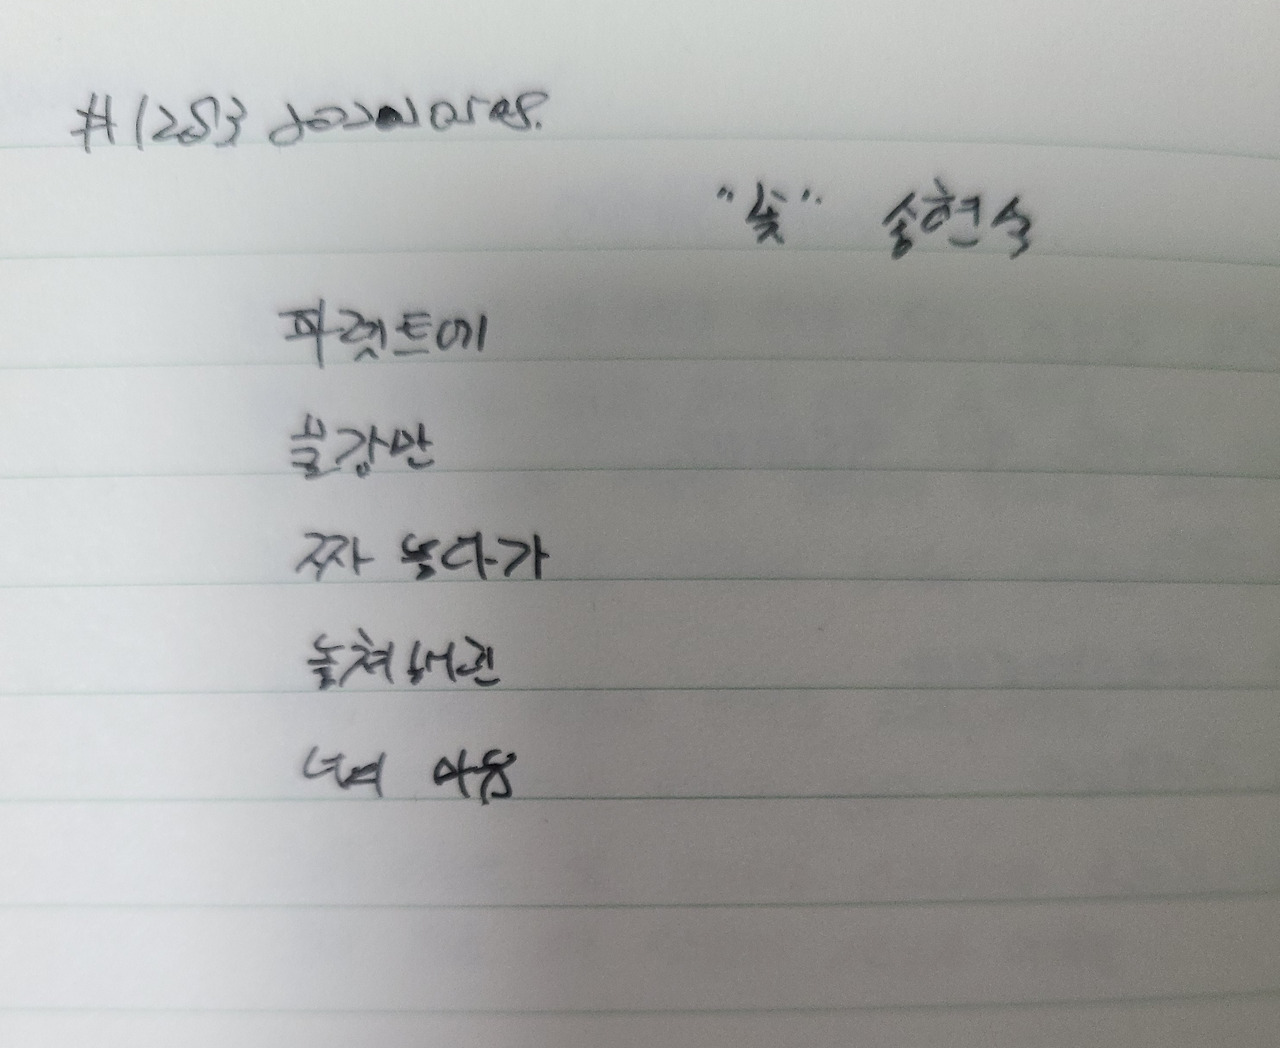 #1253
송현숙
파렛트에
물감만
짜 놓다가
놓쳐버린
너의 마음